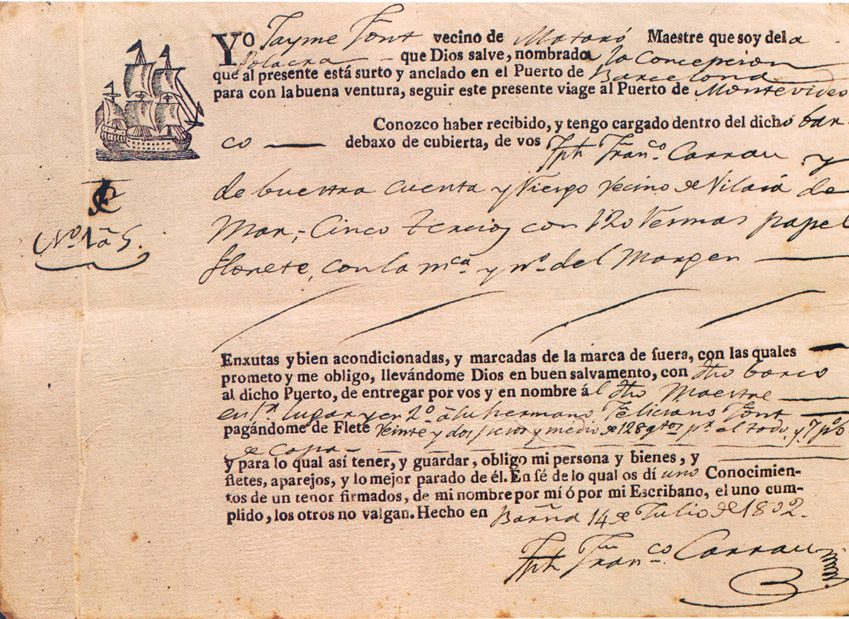 Yo Jayme Font vecino de Mataró Maestre que soy dela
Polacra que Dios salve, nombrada la Concepcion
que al presente está surto y anclado en el Puerto de Barcelona
para con la buena ventura, seguir este presente viage al Puerto de Montevideo
Conozco haber recibido, y tengo cargado dentro del dicho bar
co debaxo de cubierta, de vos Jph Franco. Carrau y
de buestra cuenta y Riesgo vecino de Vilasá de
Mar, Cinco tercios con 120 Resmas papel
florete, con la mca y no. del Margen
No. 1 à 5.
Enxutas y bien acondicionadas, y marcadas de la marca de fuera, con las quales
prometo y me obligo, llevándome Dios en buen salvamento, con dho barco
al dicho Puerto, de entregar por vos y en nombre ál dho Maestre
en 1r. lugar y en 2o. à su hermano Feliciano Font
pagándome de Flete veinte y dos pesos y medio de 128 qtos pr. el todo, y 7 p%
de capa
y para lo qual así tener, y guardar, obligo mi persona y bienes, y
fletes, aparejos, y lo mejor parado de él. En fé de lo qual os dí uno Conocimien-
tos de un tenor firmados, de mi nombre por mi ó por mi Escribano, el uno cum-
plido, los otros no valgan. Hecho en Barna 14 de Julio de 1802.
Jph Franco Carrau